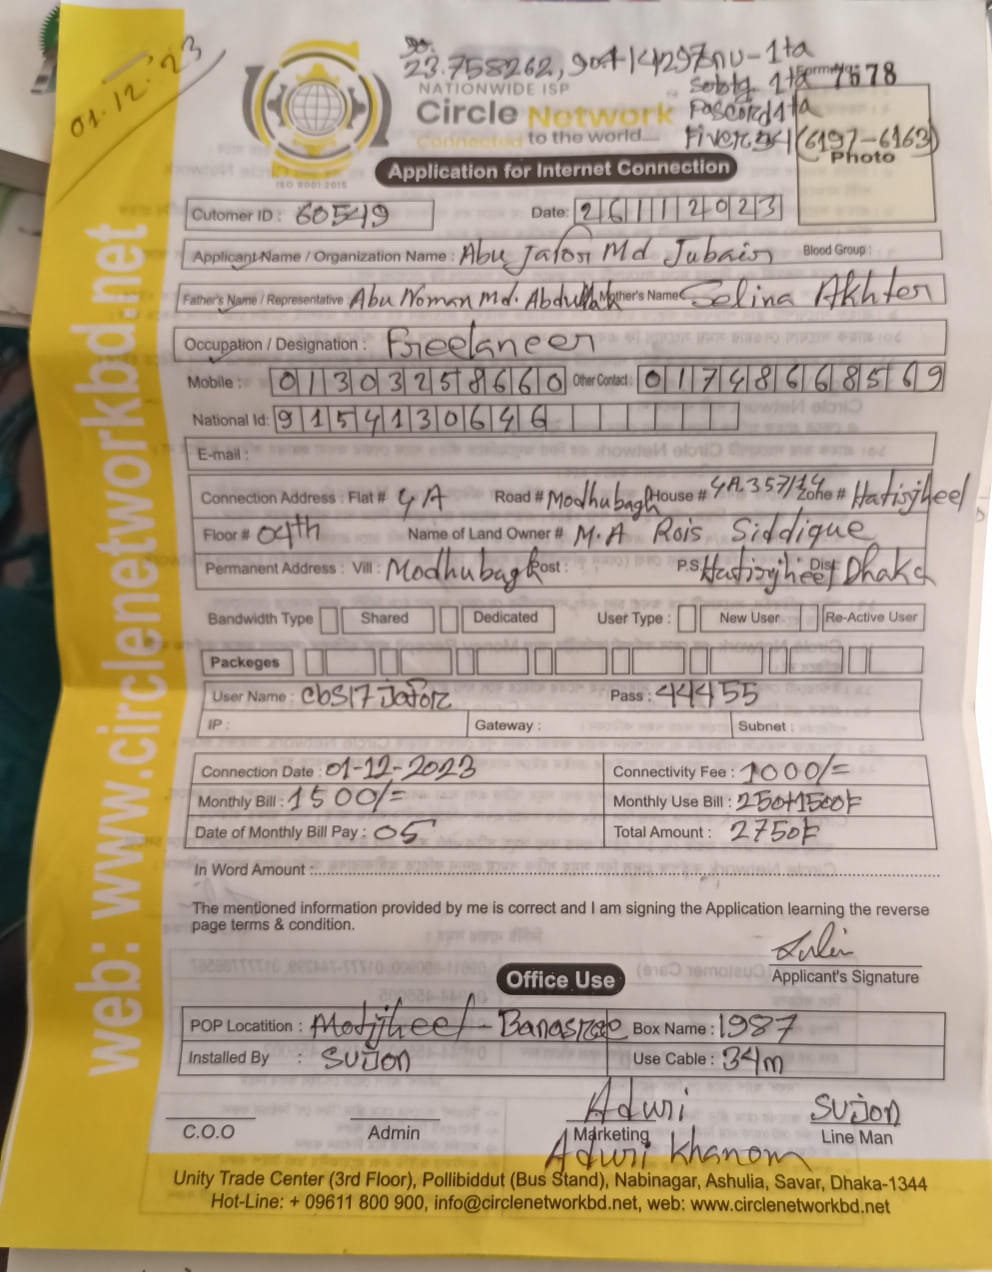 01.12.23
23.758262, 90.414297 onu-1ta
NATIONWIDE ISP
Form No: 7678
Circle Network
Pascord 1ta
Connected to the world....
Fiver 34 (6197-6163)
Photo
ISO 9001:2015
Application for Internet Connection
Cutomer ID : 60549 Date: 26112023
Applicant Name / Organization Name : Abu Jafor Md Jubair Blood Group :
Father's Name / Representative Abu Noman Md. Abdullah Mother's Name Selina Akhter
Occupation / Designation : Freelancer
Mobile : 01303258660 Other Contact : 01748668569
National Id: 9154130646
E-mail :
Connection Address : Flat # 4A Road # Modhubagh House # 4A.357/14 Zone # Hatirjheel
Floor # 04th Name of Land Owner # M.A Rois Siddique
Permanent Address : Vill : Modhubagh Post : P.S. Hatirjheel Dist Dhaka
Bandwidth Type Shared Dedicated User Type : New User Re-Active User
Packeges
User Name : cbs17jafor Pass : 44455
IP : Gateway : Subnet :
Connection Date : 01-12-2023 Connectivity Fee : 1000/=
Monthly Bill : 1500/= Monthly Use Bill : 250+1500৳
Date of Monthly Bill Pay : 05 Total Amount : 2750৳
In Word Amount :
The mentioned information provided by me is correct and I am signing the Application learning the reverse
page terms & condition.
Applicant's Signature
Office Use
POP Locatition : Motijheel - Banasree Box Name : 1987
Installed By : Sujon Use Cable : 34m
Aduri Sujon
C.O.O Admin Marketing Line Man
Aduri Khanom
Unity Trade Center (3rd Floor), Pollibiddut (Bus Stand), Nabinagar, Ashulia, Savar, Dhaka-1344
Hot-Line: + 09611 800 900, info@circlenetworkbd.net, web: www.circlenetworkbd.net
web: www.circlenetworkbd.net